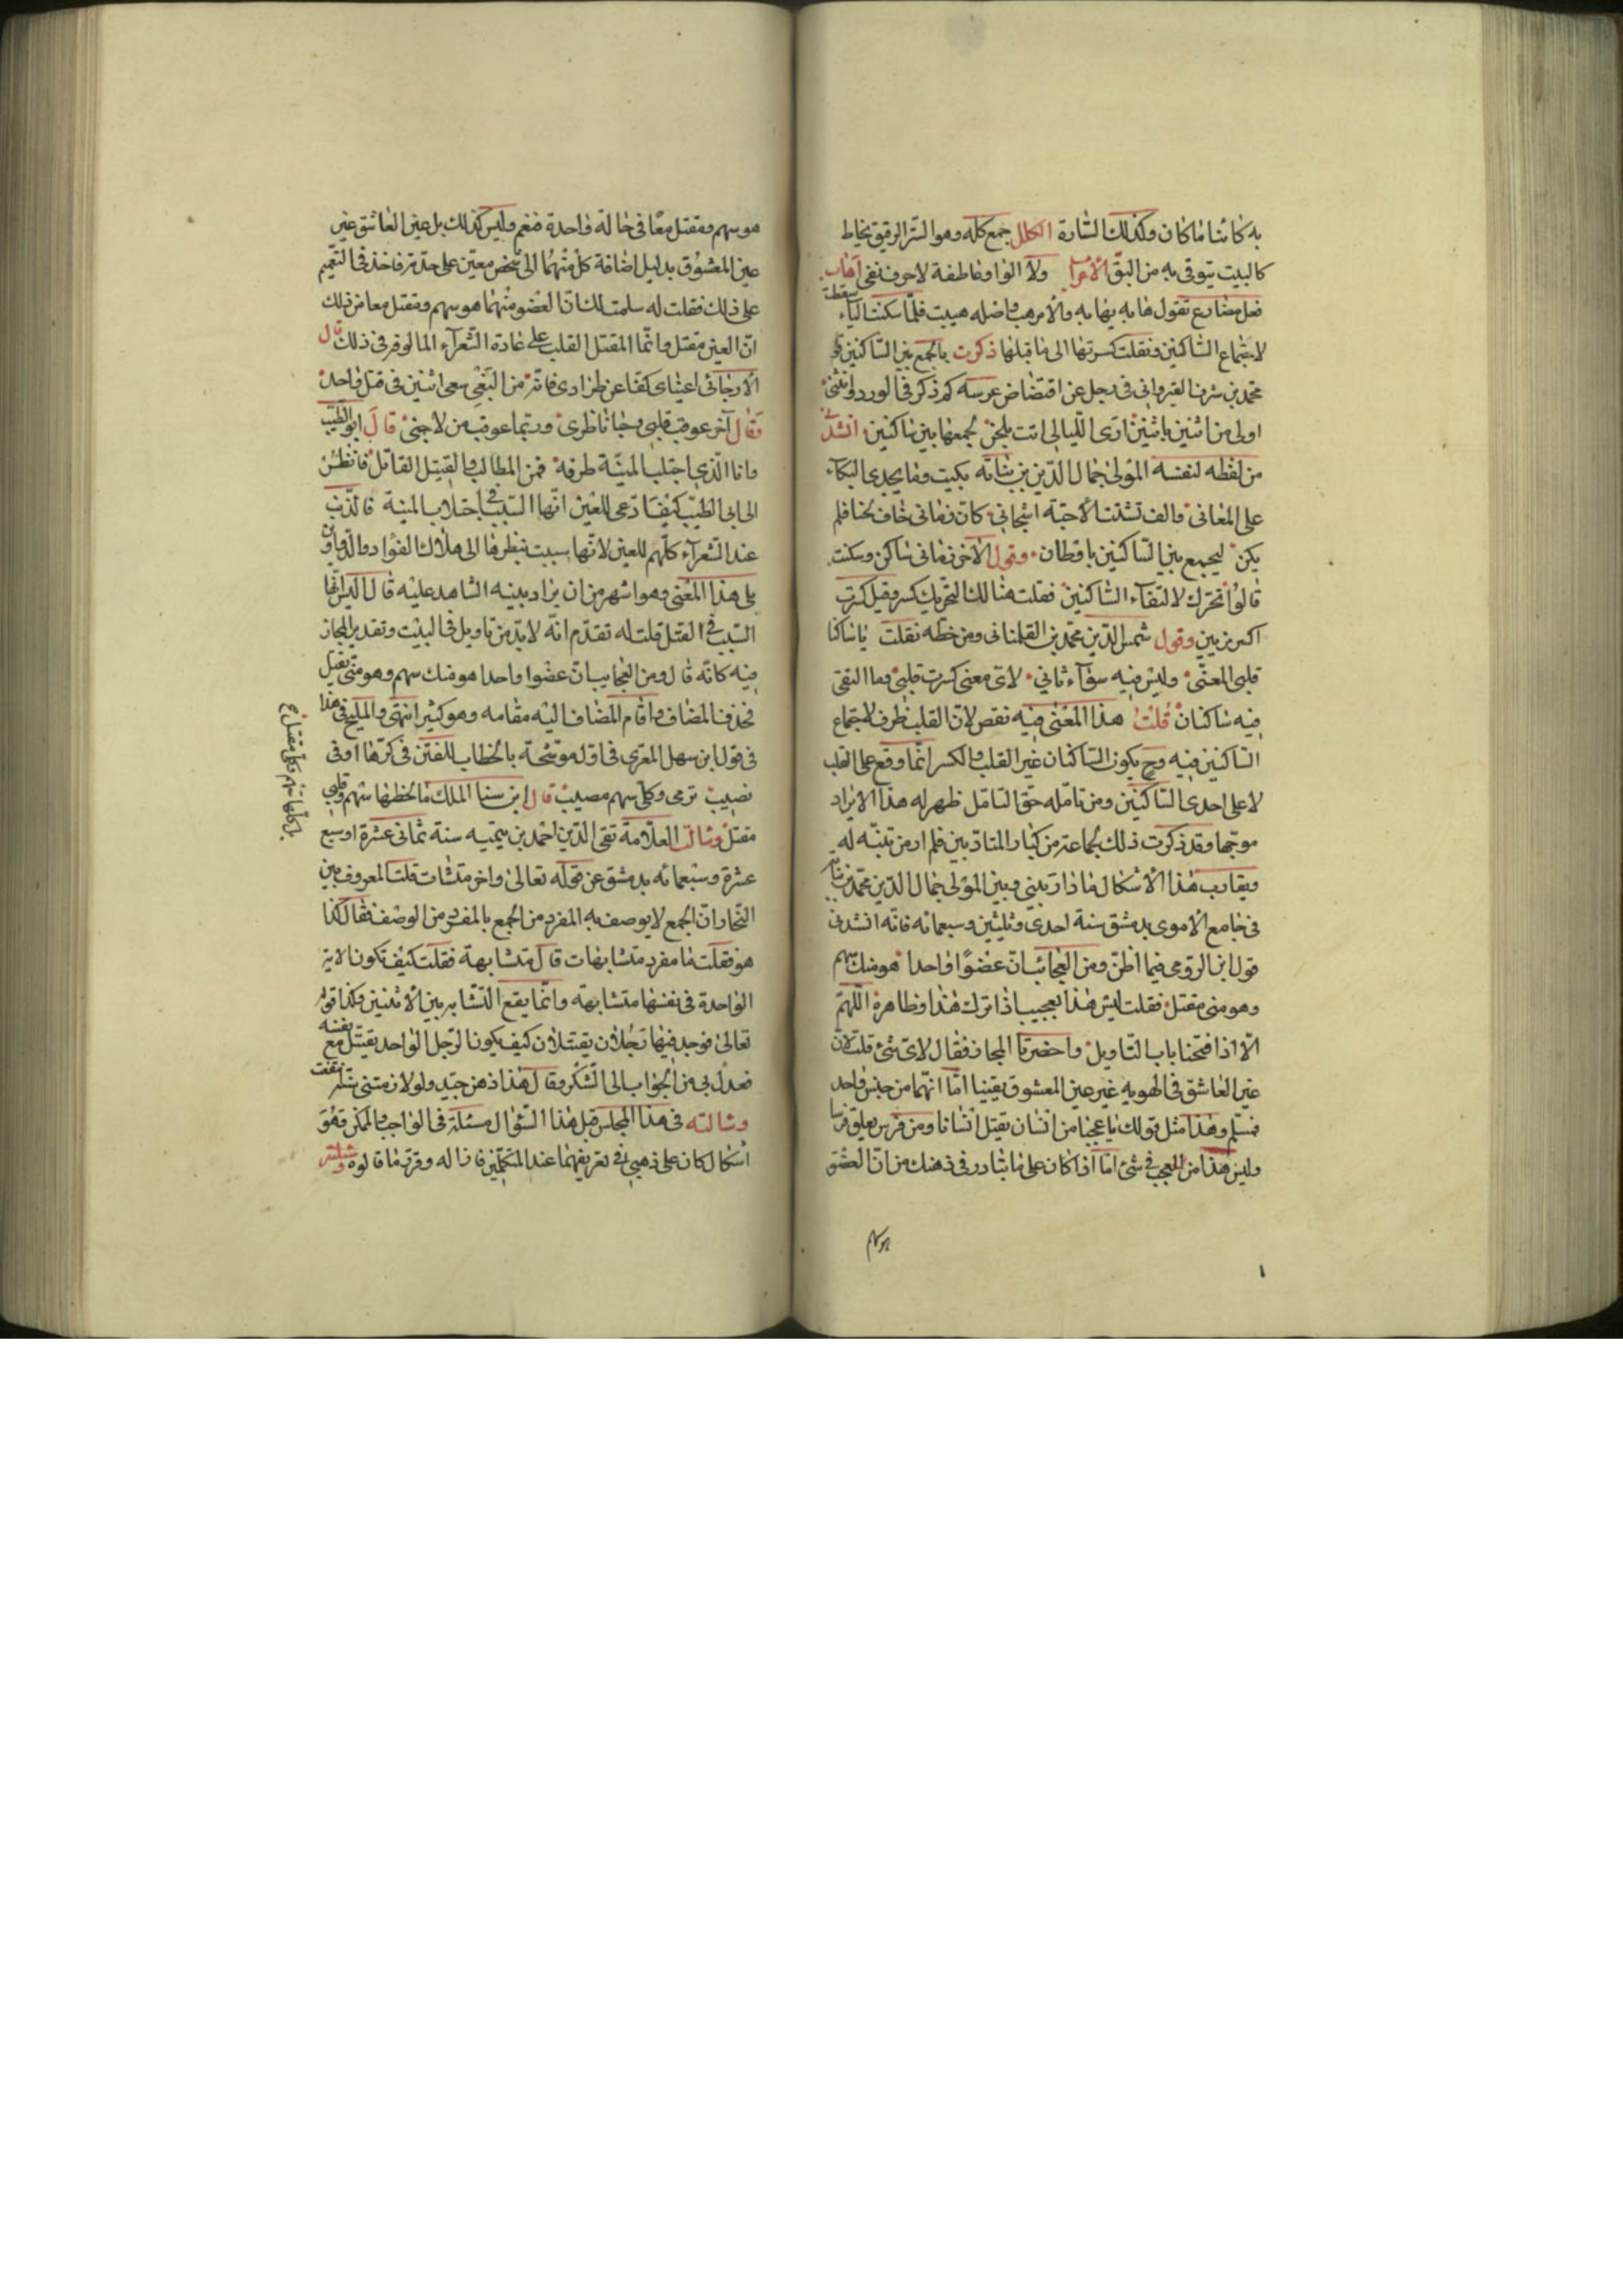 به كائنا ما كان وكذلك الشارة الكلل جمع كله وهو الستر الرقيق يخاط
كالبيت يتوقى به من البق الاعراب ولا الواو عاطفة لا حرف نفى اهاب
فعل مضارع تقول هابه يهابه والامر هب واصله هيبت فلما سكنت الياء سقطت
لاجتماع الساكنين ونقلت كسرتها الى ما قبلها ذكرت بالجمع بين الساكنين
محمد بن شرف القيروانى فى رجل عن اقتضاض عرسه كم ذكر فى الورد وانثى
اولى من اثنين باثنين ارى الليالى اتت بلحن لجمعها بين ساكنين انشدنى
من لفظه لنفسه المولى جمال الدين بن نباته بكيت وما يجدى البكاء
على المغانى والف تشتت الاحبة اشجانى كان زمانى خاف لحنا فلم
يكن ليجمع بين الساكنين باوطان وقول الآخر زمانى ساكن وسكنت
قالوا تحرك لالتقاء الساكنين فقلت هنالك التحريك كسر وقيل كسرت
اكبر من بين وقول شمس الدين محمد بن التلمسانى ومن خطه نقلت يا ساكنا
قلبى المعنى وليس فيه سواء ثانى لاى معنى كسرت قلبى وما التقى
فيه ساكنان قلت هذا المعنى فيه نقص لان القلب ظرف لاجتماع
الساكنين فيه وح يكون الساكنان غير القلب والكسر انما وقع على القلب
لا على احدى الساكنين ومن تامله حق التامل ظهر له هذا الايراد
موجها وقد ذكرت ذلك لجماعة من كبار المتادبين فلم ار من تنبه له
ويقارب هذا الاشكال ما دار بينى وبين المولى جمال الدين محمد بن نباته
فى جامع الاموى بدمشق سنة احدى وثلثين وسبعمائه فانه انشدنى
قول ابن الرومى فيما اظن ومن العجائب ان عضوا واحدا هو منك سهم
وهو منى مقتل فقلت ليس هذا بعجيب اذا ترك هذا وظاهره اللهم
الا اذا فتحنا باب التاويل واحضرنا المجاز فقال لاى شئ قلت لان
عين العاشق فى الهويه غير عين المعشوق يقينيا اما انهما من جنس واحد
فمسلم وهذا مثل قولك يا عجبا من انسان يقتل انسانا ومن فرس يعلق فرسا
وليس هذا من العجب فى شئ اما اذا كان على ما يتبادر فى ذهنك من ان العضو
هو سهم
هو سهم ومقتل معا فى حالة واحدة فنعم وليس كذلك بل عين العاشق غير
عين المعشوق بدليل اضافة كل منهما الى شخص معين على حدته فاخذ فى التصميم
على ذلك فقلت له سلمت لك ان العضو منهما هو سهم ومقتل معا من ذلك
ان العين مقتل وانما المقتل القلب على عادة الشعراء المالوفة فى ذلك قال
الارجانى اعيناى كفا عن فؤادى فانه من البغى سعى اثنين فى قتل واحد
وقال آخر عوقب قلبى وجنا ناظرى وربما عوقب من لا جنى قال ابو الطيب
وانا الذى اجتلب المنية طرفه فمن المطالب والقتيل القاتل فانظر
الى ابى الطيب كيف ادعى للعين انها السبب فى اجتلاب المنية فالذنب
عند الشعراء كلهم للعين لانها سببت بنظرها الى هلاك الفؤاد
على هذا المعنى وهو اشهر من ان يراد بينه الشاهد عليه قال اليس انها
السبب فى القتل قلت له تقدم انه لا بد من تاويل فى البيت وتقدير المجاز
فيه كانه قال ومن العجايب ان عضوا واحدا هو منك سهم وهو متى يقتل
فحذف المضاف واقام المضاف اليه مقامه وهو كثير انتهى والمليح فى هذا
فى قول ابن سهل المغربى فى اول موشحة بالخطاب للفتن فى كرها اوفى
نصيب ترمى وكلى سهم مصيب قال ابن سنا الملك ما لحظها سهم وقلبى
مقتل وسالت العلامة تقى الدين احمد بن تيمية سنة ثمانى عشرة او سبع
بل كلها سهم وكلى مقتل صح
عشرة وسبعمائه بدمشق عن قوله تعالى واخر متشابهات قلت المعروف بين
النحاة ان الجمع لا يوصف به المفرد من الجمع بالمفرد من الوصف فقال كذا
هو فقلت ما مفرد متشابهات قال متشابهة فقلت كيف تكون الاية
الواحدة فى نفسها متشابهة وانما يقع التشابه بين الاثنين وكذا قوله
تعالى فوجد فيها رجلان يقتتلان كيف يكون الرجل الواحد يقتتل مع نفسه
فعدل بى من الجواب الى الشكر وقال هذا ذهن جيد ولو لازمتنى سنة انتفعت
وسالته فى هذا المجلس قبل هذا السؤال مسئلة فى الواجب والممكن وهو
اشكال كان على ذهنى فى تعريفهما عند المتكلمين فازاله وقرر ما قالوه وسئلته